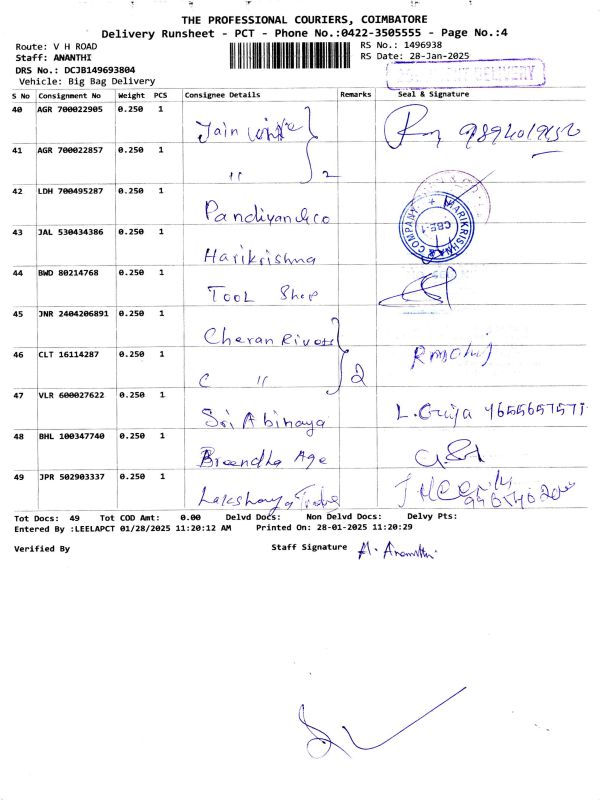 THE PROFESSIONAL COURIERS, COIMBATORE
Delivery Runsheet - PCT - Phone No.:0422-3505555 - Page No.:4
Route: V H ROAD
RS No.: 1496938
Staff: ANANTHI
RS Date: 28-Jan-2025
DRS No.: DCJB149693804
DELIVERY
Vehicle: Big Bag Delivery
S No Consignment No Weight PCS Consignee Details Remarks Seal & Signature
40 AGR 700022905 0.250 1 Jain
41 AGR 700022857 0.250 1 " 2
42 LDH 700495287 0.250 1 Pandiyan & co
43 JAL 530434386 0.250 1 Harikrishna HARIKRISHNA & COMPANY CBE-1
44 BWD 80214768 0.250 1 TOOL Shop
45 JNR 2404206891 0.250 1 Cheran
46 CLT 16114287 0.250 1 C " 2
47 VLR 600027622 0.250 1 Sri Abinaya
48 BHL 100347740 0.250 1 Age
49 JPR 502903337 0.250 1
Tot Docs: 49 Tot COD Amt: 0.00 Delvd Docs: Non Delvd Docs: Delvy Pts:
Entered By :LEELAPCT 01/28/2025 11:20:12 AM Printed On: 28-01-2025 11:20:29
Verified By Staff Signature